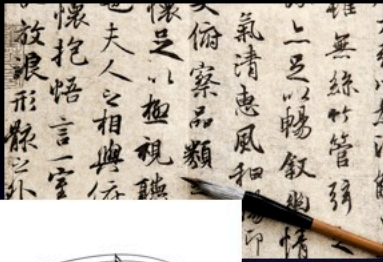 雖無絲竹管弦之
亦足以暢敘幽情
氣清惠風和暢仰
俯察品類
懷足以極視聽
也夫人之相與俯
懷抱悟言一室
放浪形骸之外